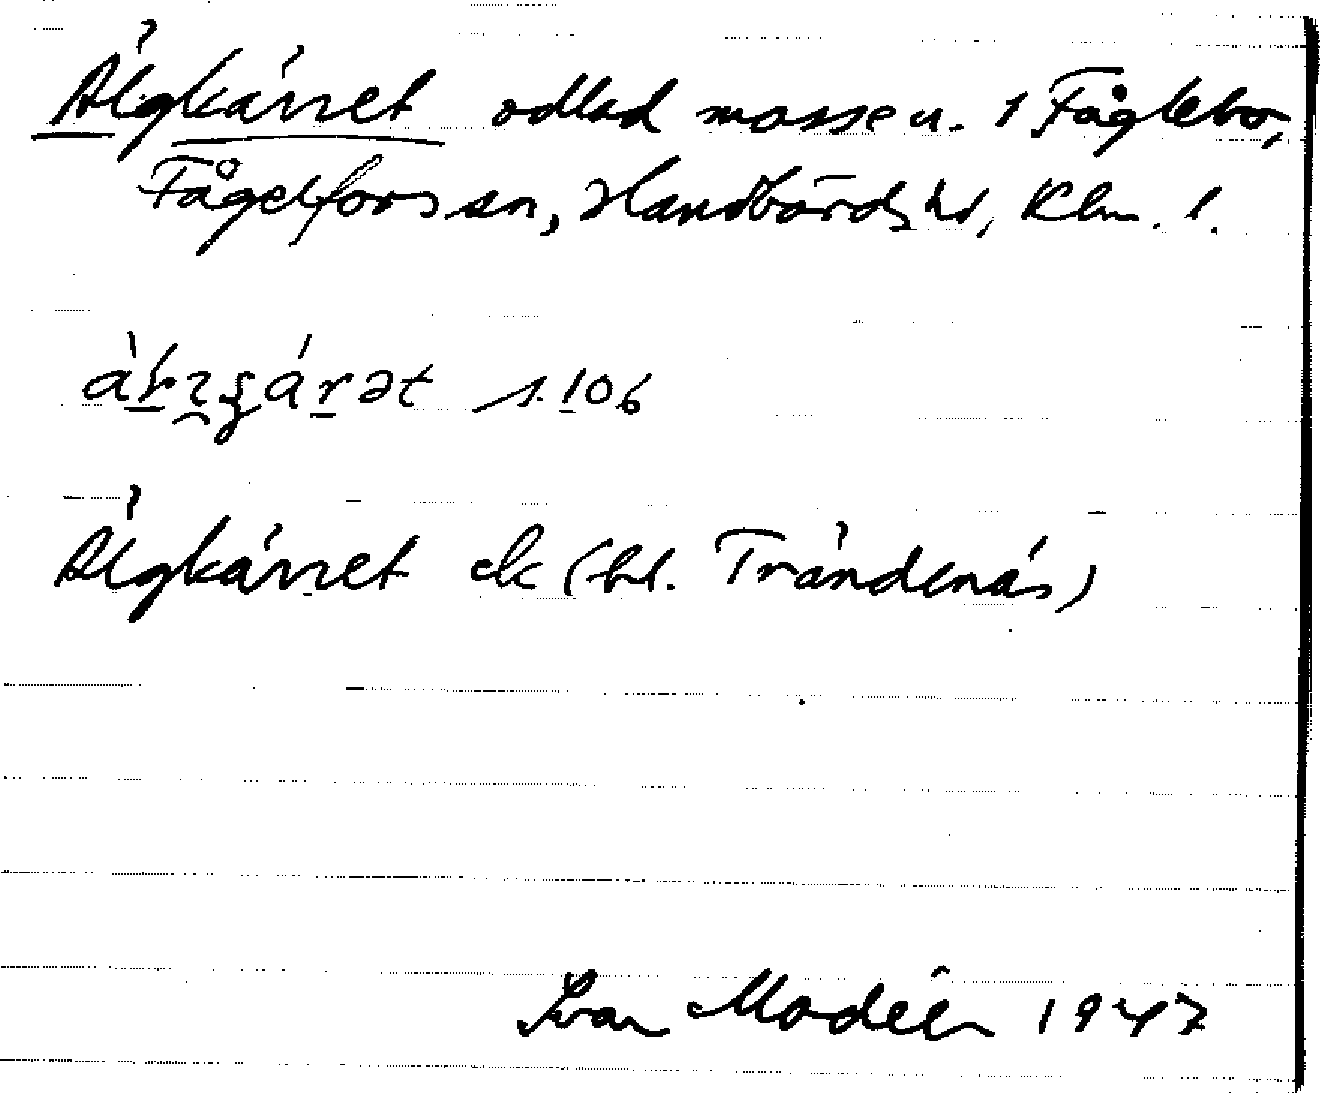 Älgkärret odlad mosse u. 1 Fåglebo,
Fågelfors sn, Handbörds hd, Klm. l.
s. 106
Älgkärret ek (bl. Trändenäs)
Ivar Modéer 1947